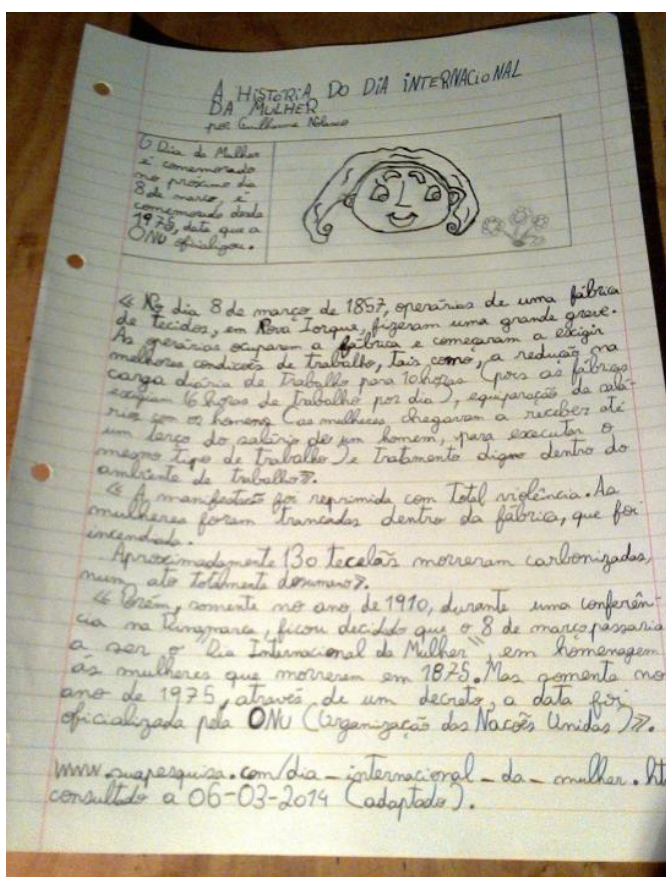 A HISTÓRIA DO DIA INTERNACIONAL
DA MULHER
por Guilherme Nolasco
O Dia da Mulher
é comemorado
no próximo dia
8 de março, é
comemorado desde
1975, data que a
ONU oficializou.
« No dia 8 de março de 1857, operárias de uma fábrica
de tecidos, em Nova Iorque, fizeram uma grande greve.
As operárias ocuparam a fábrica e começaram a exigir
melhores condições de trabalho, tais como, a redução na
carga diária de trabalho para 10 horas (pois as fábricas
exigiam 16 horas de trabalho por dia), equiparação de salá-
rios com os homens (as mulheres, chegavam a receber até
um terço do salário de um homem, para executar o
mesmo tipo de trabalho) e tratamento digno dentro do
ambiente de trabalho».
« A manifestação foi reprimida com total violência. As
mulheres foram trancadas dentro da fábrica, que foi
incendiada.
Aproximadamente 130 tecelãs morreram carbonizadas,
num ato totalmente desumano».
« Porém, somente no ano de 1910, durante uma conferên-
cia na Dinamarca, ficou decidido que o 8 de março passaria
a ser o "Dia Internacional da Mulher", em homenagem
ás mulheres que morreram em 1875. Mas somente no
ano de 1975, através de um decreto, a data foi
oficializada pela ONU (Organização das Nações Unidas)».
www.suapesquisa.com/dia_internacional_da_mulher.ht
consultado a 06-03-2014 (adaptado).